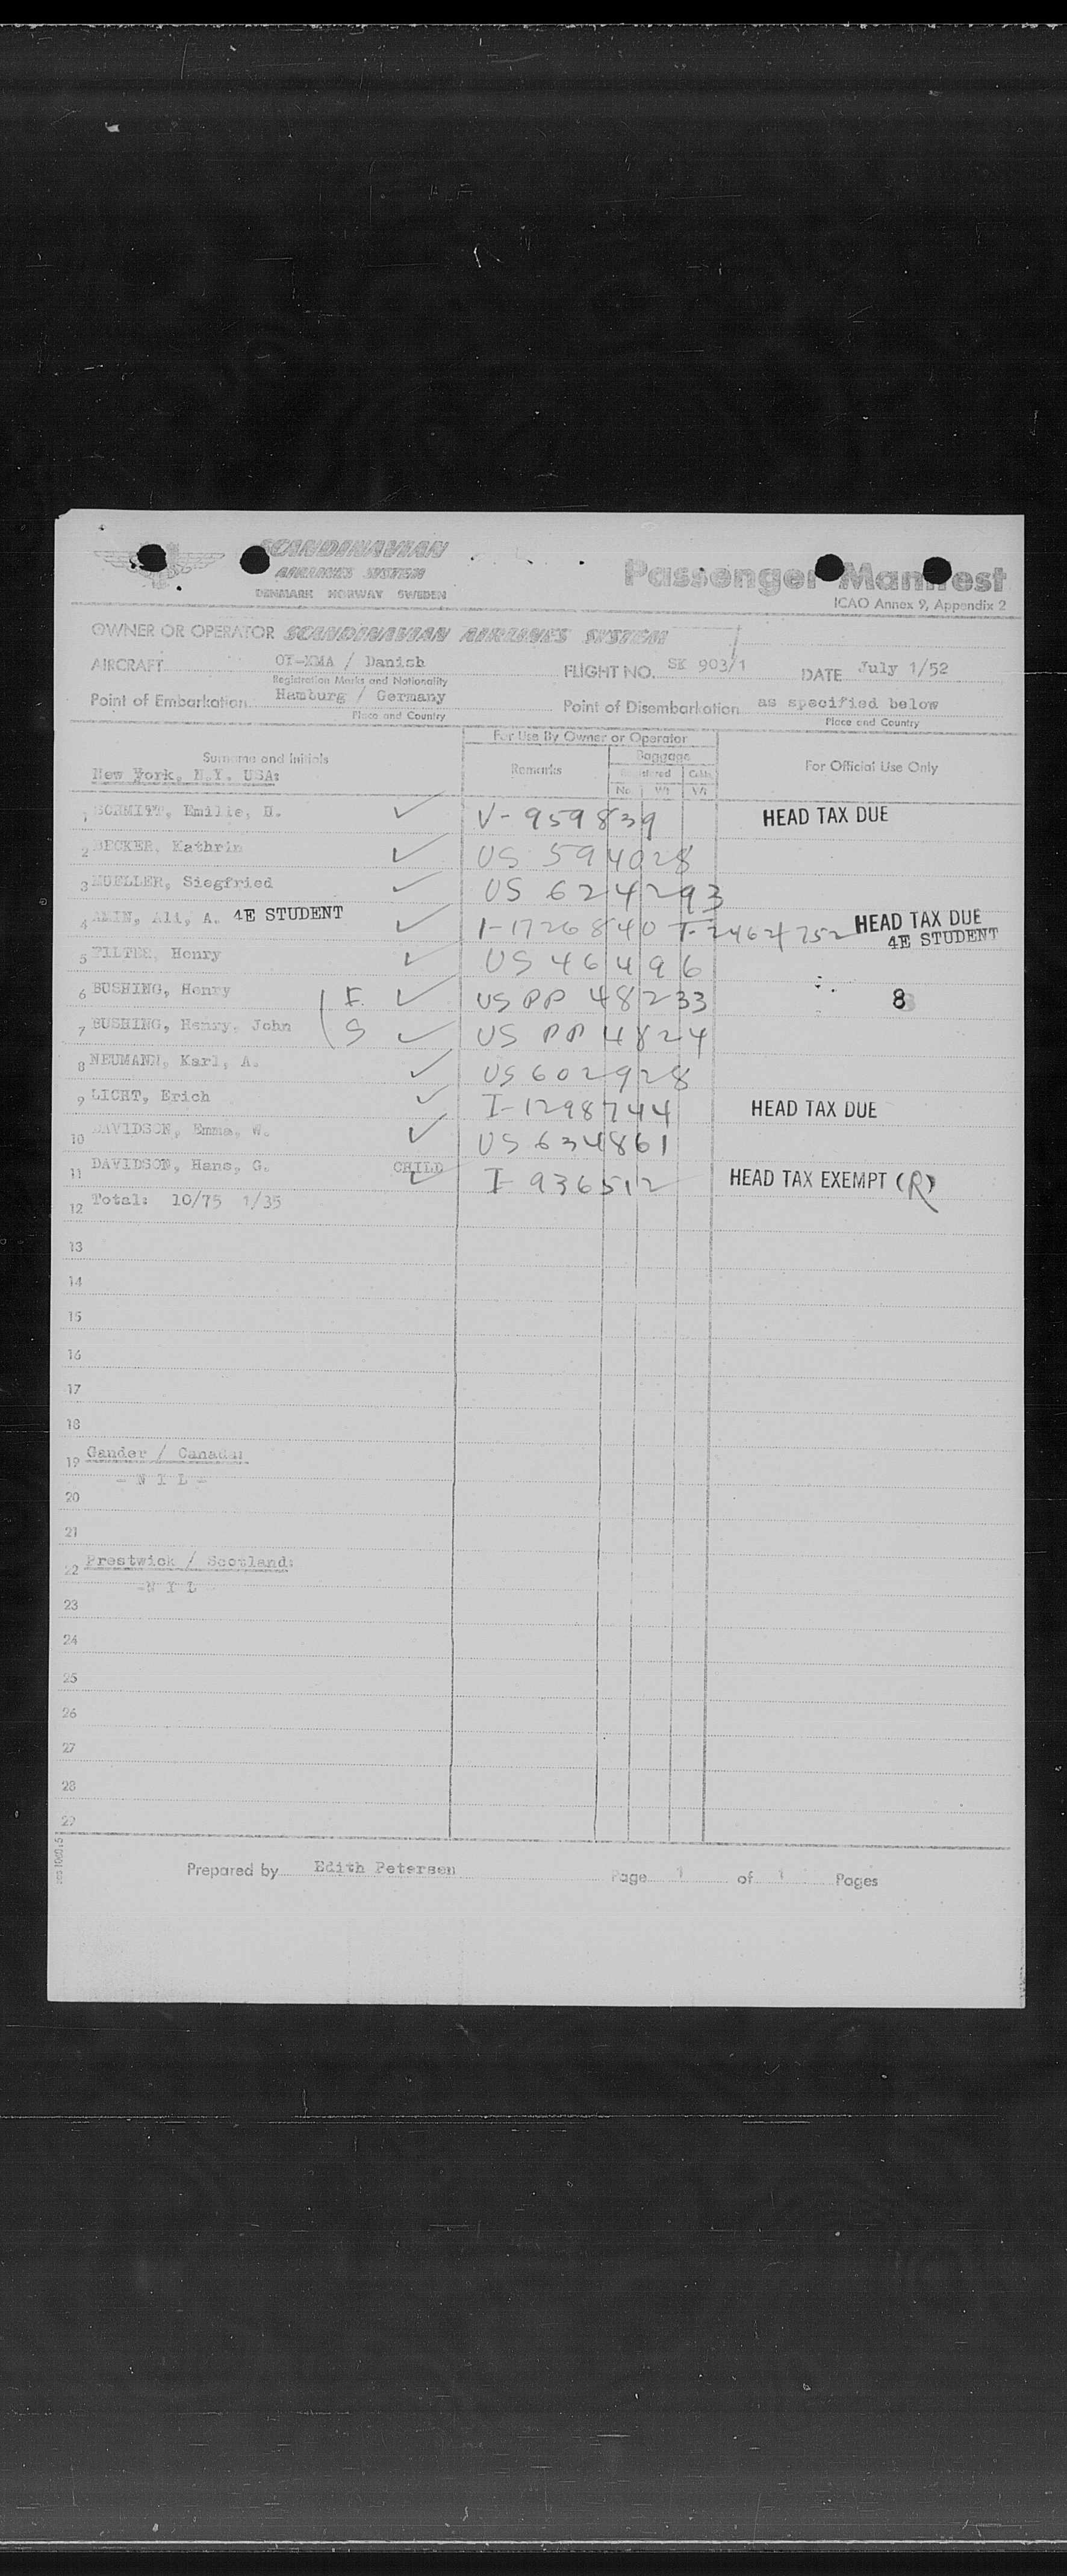 SCANDINAVIAN
AIRLINES SYSTEM
DENMARK NORWAY SWEDEN
Passenger Manifest
ICAO Annex 9, Appendix 2
OWNER OR OPERATOR SCANDINAVIAN AIRLINES SYSTEM
AIRCRAFT OY-KMA / Danish FLIGHT NO. SK 903/1 DATE July 1/52
Registration Marks and Nationality
Point of Embarkation Hamburg / Germany Point of Disembarkation as specified below
Place and Country Place and Country
For Use By Owner or Operator
Surname and Initials Remarks Baggage For Official Use Only
New York, N.Y. USA: Registered Cabin
No. Wt Wt
1 SCHMITT, Emilie, H. ✓ V-959839 HEAD TAX DUE
2 BECKER, Kathrin ✓ US 594028
3 MUELLER, Siegfried ✓ US 624293
4 AMIN, Ali, A. 4E STUDENT ✓ I-1726840 T-2462752 HEAD TAX DUE
4E STUDENT
5 FILTER, Henry ✓ US 46496
6 BUSHING, Henry F. ✓ US PP 48233 8
7 BUSHING, Henry, John S ✓ US PP 4824
8 NEUMANN, Karl, A. ✓ US 602928
9 LICHT, Erich ✓ I-1298744 HEAD TAX DUE
10 DAVIDSON, Emma, W. ✓ US 634861
11 DAVIDSON, Hans, G. CHILD ✓ I-936512 HEAD TAX EXEMPT (R)
12 Total: 10/75 1/35
13
14
15
16
17
18
19 Gander / Canada:
- N I L -
20
21
22 Prestwick / Scotland:
-N I L
23
24
25
26
27
28
29
Prepared by Edith Petersen Page 1 of 1 Pages